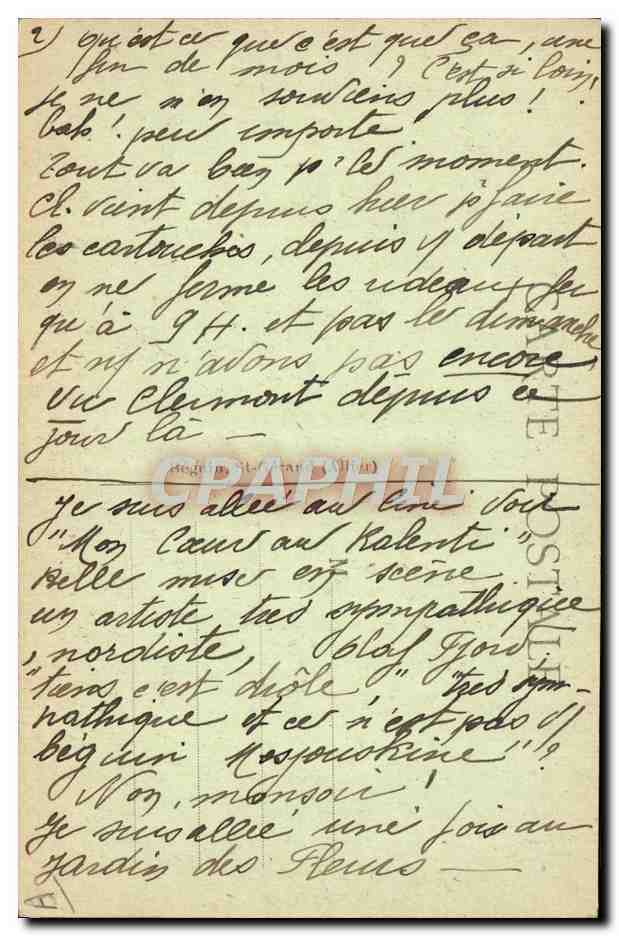 2) qu'est ce que c'est que ça, une
fin de mois ? C'est si loin,
je ne m'en souviens plus !
bah ! peu importe
Tout va bien pr le moment.
Cl. vient depuis hier pr faire
les cartouches, depuis vs départ
on ne ferme les rideaux fer
qu'à 9 H. et pas le dimanche
et ns n'avons pas encore
vu Clermont depuis ce
jour là —
Béguin, St-Gérand (Allier)
CPAPHIL
CARTE POSTALE
Je suis allée au ciné voir
"Mon Cœur au Ralenti"
belle mise en scène
un artiste très sympathique
, nordiste, Olaf Fjord.
"tiens c'est drôle", "très sym-
pathique et ce n'est pas vs
béguin Mosjouskine" ?
Non, monsoir !
Je suis allée une fois au
Jardin des Fleurs —
A